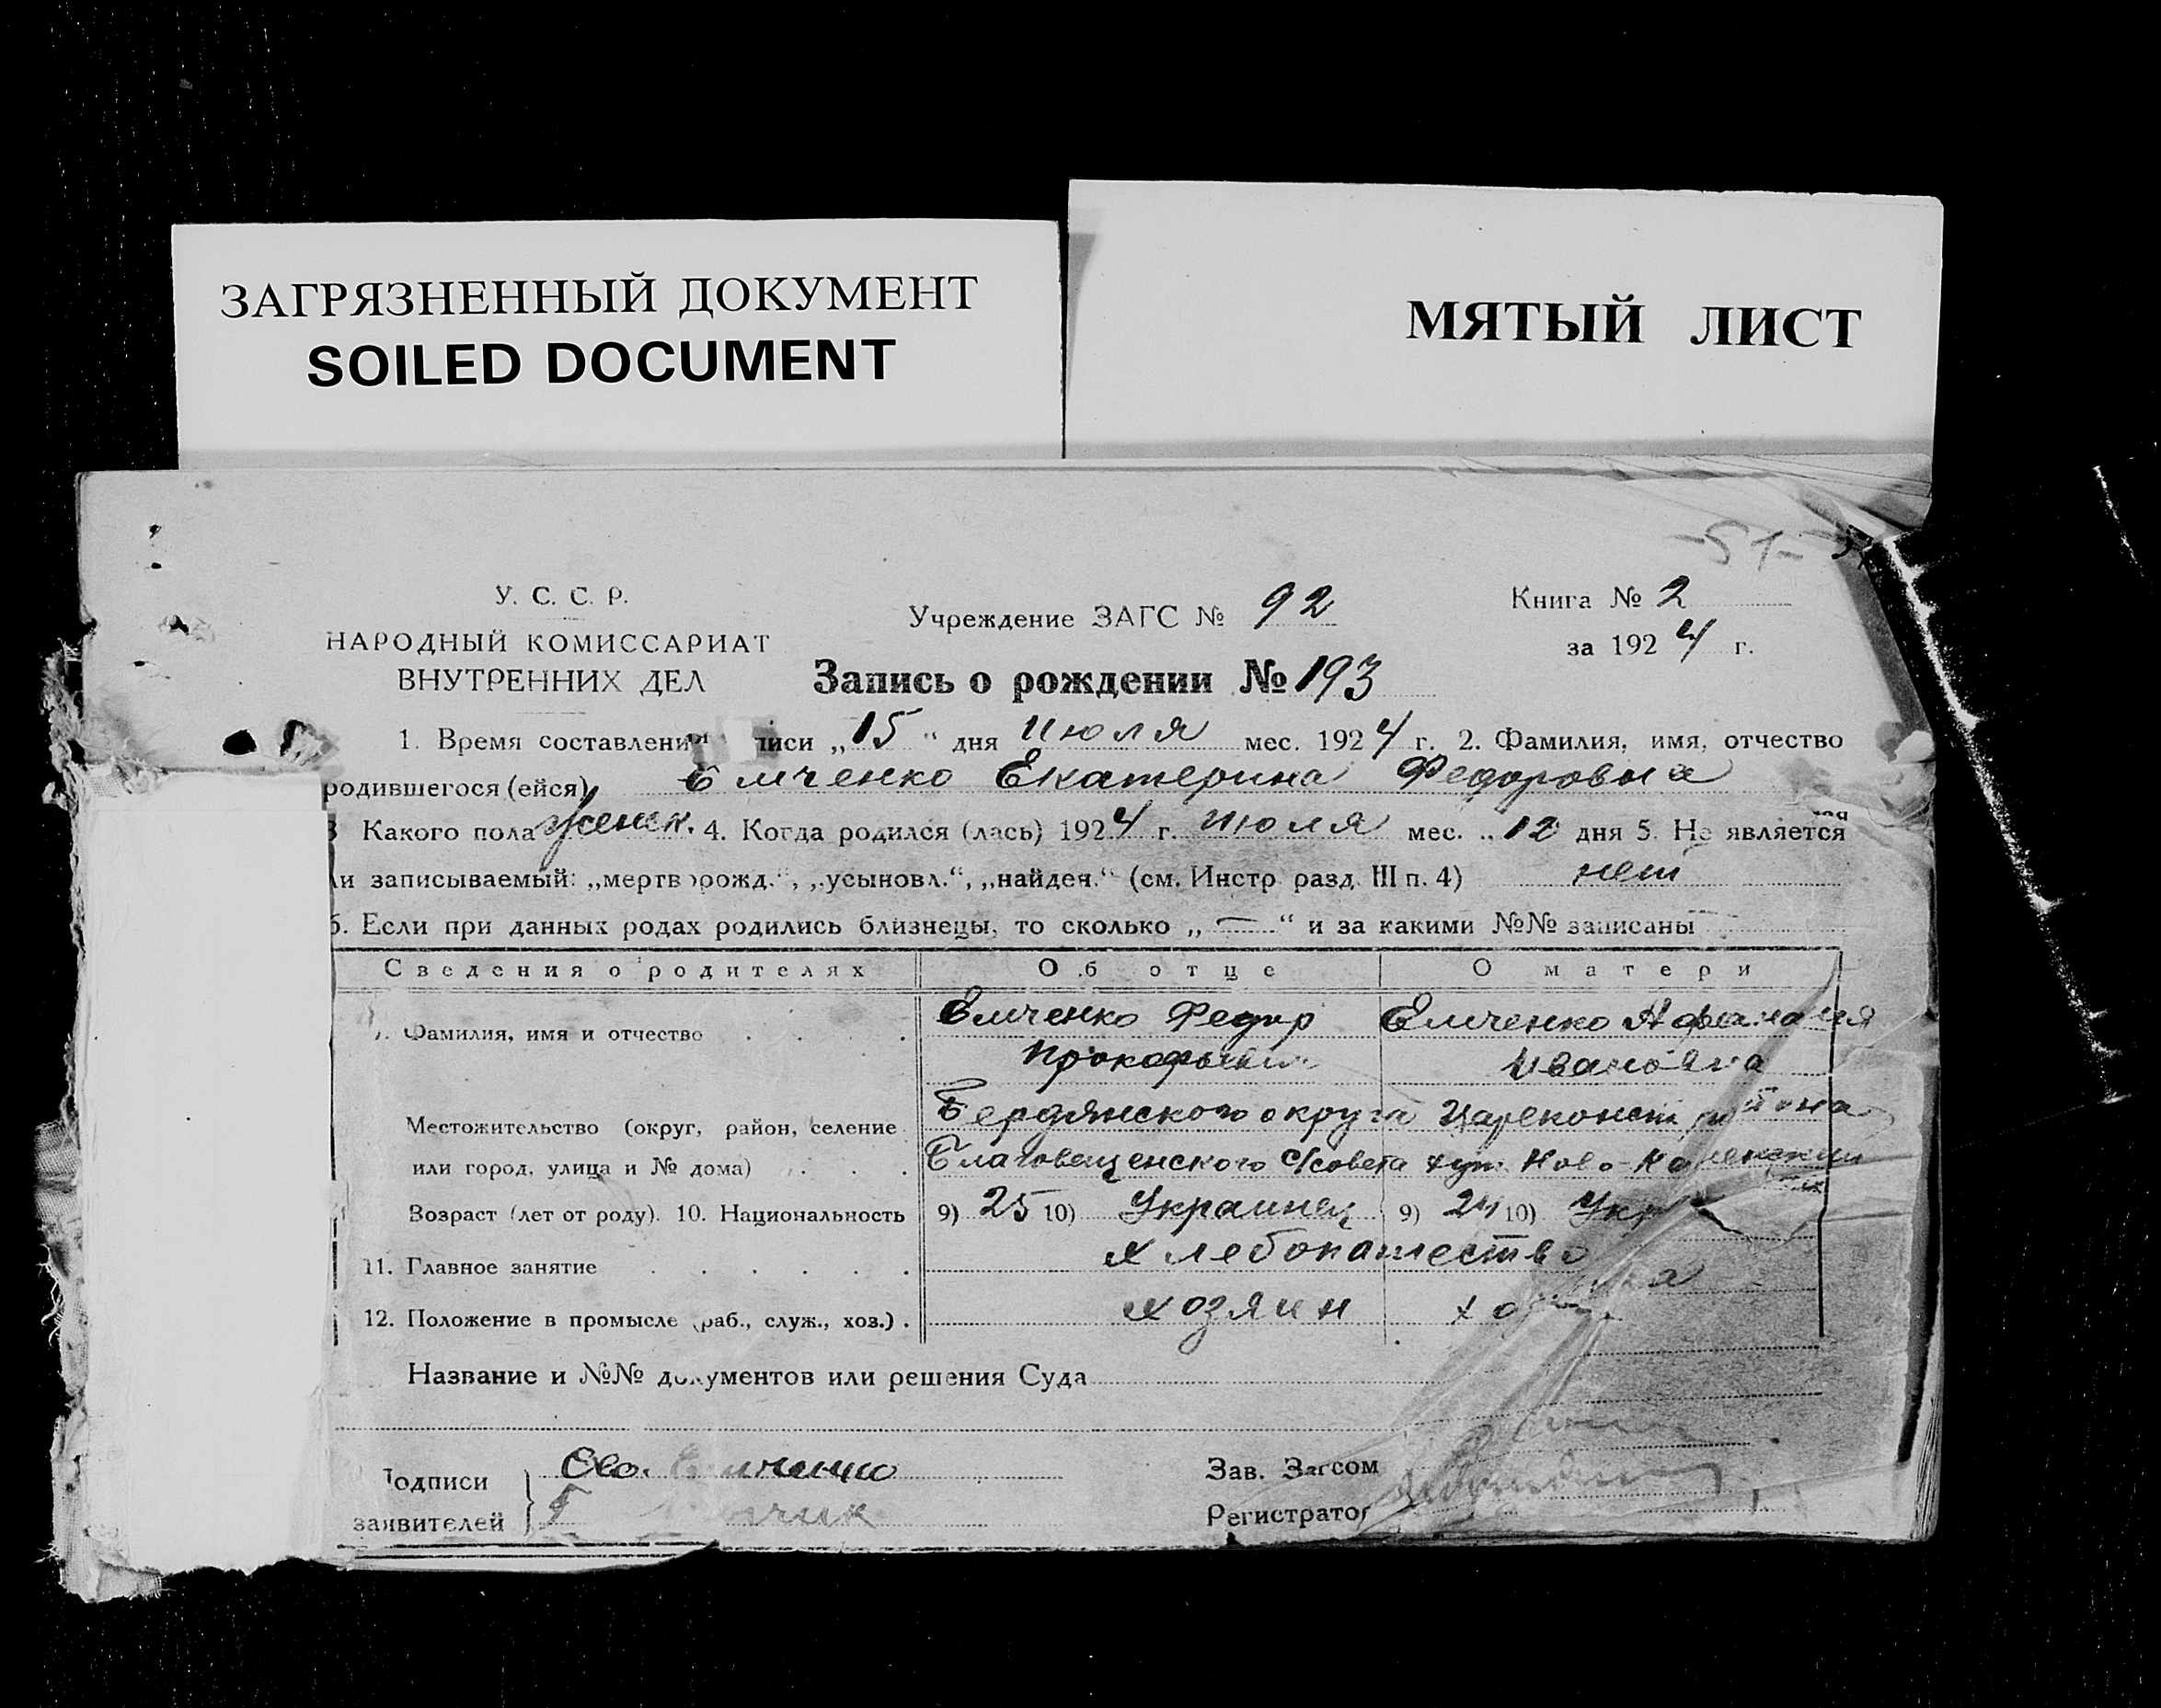 ЗАГРЯЗНЕННЫЙ ДОКУМЕНТ
SOILED DOCUMENT
МЯТЫЙ ЛИСТ
У. С. С. Р.
НАРОДНЫЙ КОМИССАРИАТ
ВНУТРЕННИХ ДЕЛ
Учреждение ЗАГС № 92
Книга № 2
за 1924 г.
Запись о рождении № 193
1. Время составления писи „15“ дня июля мес. 1924 г. 2. Фамилия, имя, отчество
родившегося (ейся) Емченко Екатерина Федоровна
3 Какого пола женск. 4. Когда родился (лась) 1924 г. июля мес. „12 дня 5. Не является
ли записываемый: „мертворожд.“, „усыновл.“, „найден.“ (см. Инстр. разд. III п. 4) нет
6. Если при данных родах родились близнецы, то сколько „—“ и за какими №№ записаны
Сведения о родителях Об отце О матери
Фамилия, имя и отчество Емченко Федор Емченко
Ивановна
Местожительство (округ, район, селение Бердянского округа Цареконст района
или город, улица и № дома) Благовещенского С/совета хут. Ново-
Возраст (лет от роду). 10. Национальность 9) 25 10) Украинец 9) 24 10) Укр
11. Главное занятие Хлебопашество
12. Положение в промысле (раб., служ., хоз.) хозяин
Название и №№ документов или решения Суда
Подписи Емченко
заявителей
Зав. Загсом
Регистратор